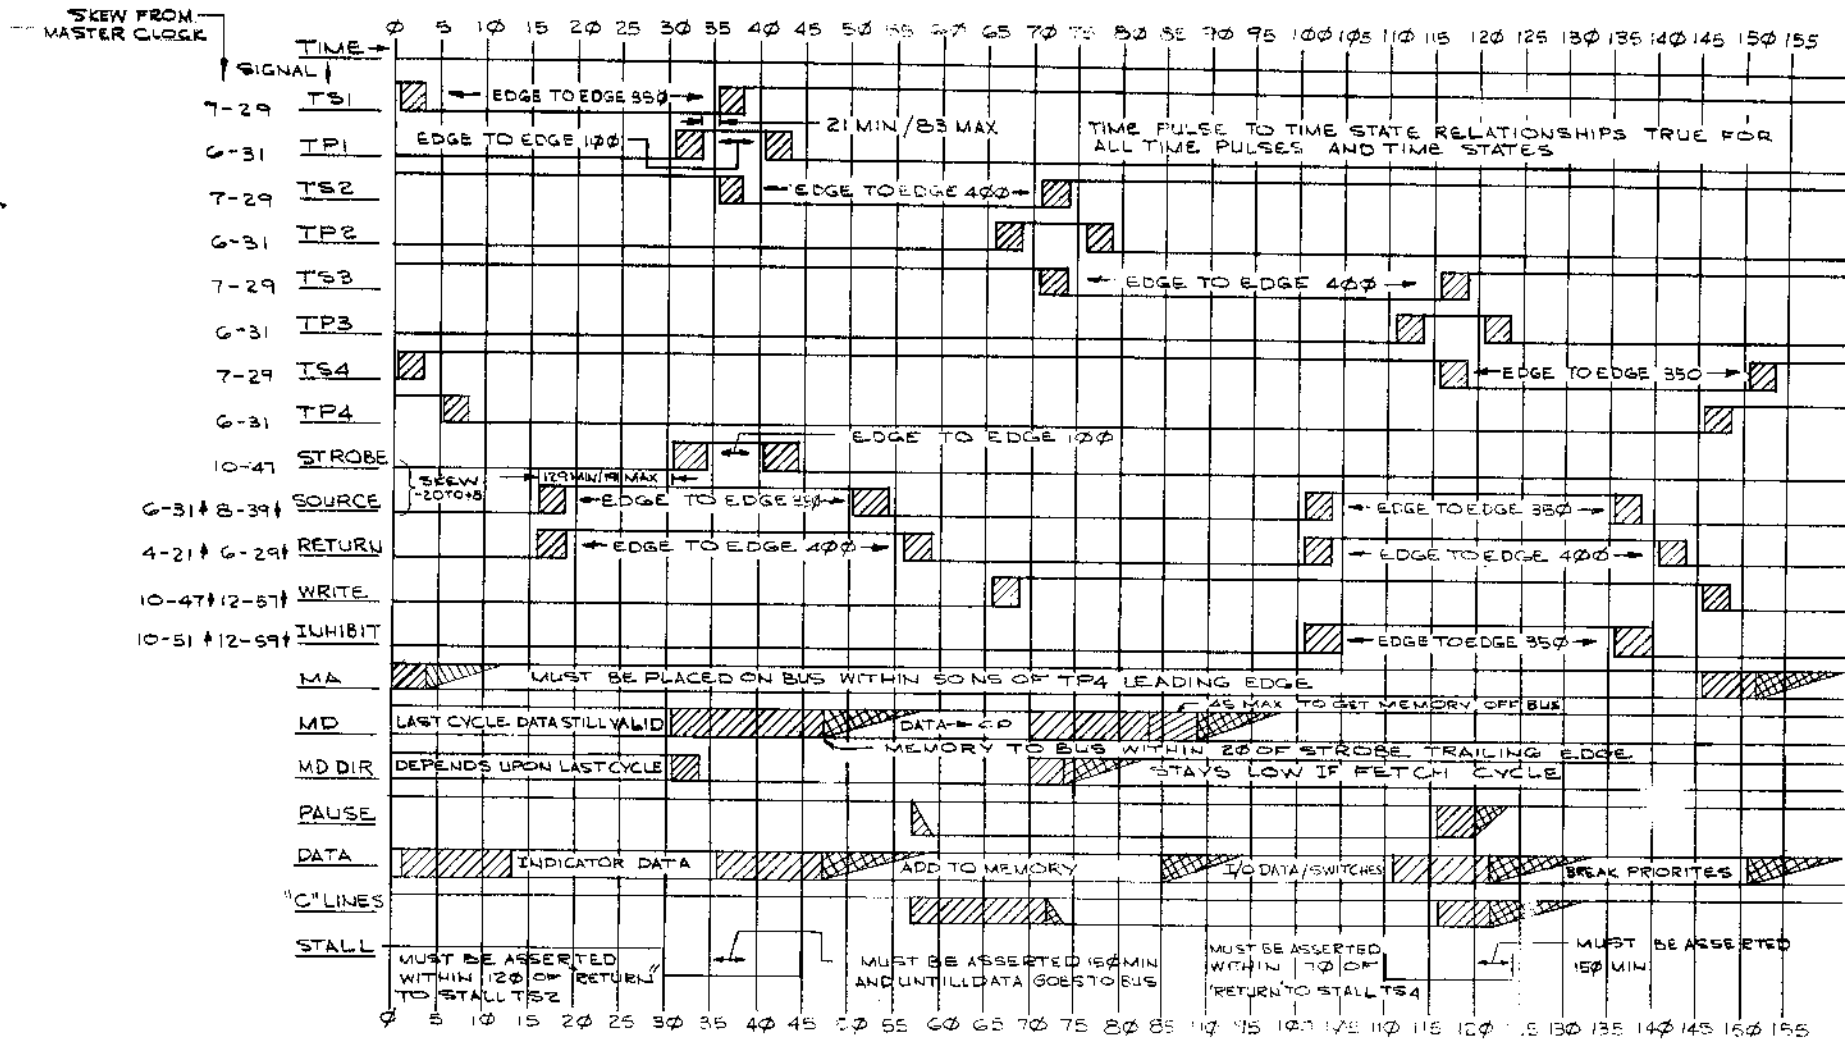 SKEW FROM
MASTER CLOCK
TIME
0 5 10 15 20 25 30 35 40 45 50 55 60 65 70 75 80 85 90 95 100 105 110 115 120 125 130 135 140 145 150 155
SIGNAL
7-29 TS1 EDGE TO EDGE 350
21 MIN/83 MAX
TIME PULSE TO TIME STATE RELATIONSHIPS TRUE FOR
ALL TIME PULSES AND TIME STATES
6-31 TP1 EDGE TO EDGE 100
7-29 TS2 EDGE TO EDGE 400
6-31 TP2
7-29 TS3 EDGE TO EDGE 400
6-31 TP3
7-29 TS4 EDGE TO EDGE 350
6-31 TP4
EDGE TO EDGE 100
10-47 STROBE
SKEW
-20TO+8
129MIN/191MAX
6-31↑ 8-39↓ SOURCE EDGE TO EDGE 350 EDGE TO EDGE 350
4-21↑ 6-29↓ RETURN EDGE TO EDGE 400 EDGE TO EDGE 400
10-47↑12-57↓ WRITE
10-51↑12-59↓ INHIBIT EDGE TO EDGE 350
MA MUST BE PLACED ON BUS WITHIN 50NS OF TP4 LEADING EDGE
45 MAX TO GET MEMORY OFF BUS
MD LAST CYCLE DATA STILL VALID DATA→CP
MEMORY TO BUS WITHIN 20 OF STROBE TRAILING EDGE
MD DIR DEPENDS UPON LAST CYCLE STAYS LOW IF FETCH CYCLE
PAUSE
DATA INDICATOR DATA ADD TO MEMORY I/O DATA/SWITCHES BREAK PRIORITES
"C" LINES
STALL
MUST BE ASSERTED
WITHIN 120 OF "RETURN"
TO STALL TS2
MUST BE ASSERTED 150 MIN
AND UNTILL DATA GOES TO BUS
MUST BE ASSERTED
WITHIN 170 OF
"RETURN" TO STALL TS4
MUST BE ASSERTED
150 MIN
0 5 10 15 20 25 30 35 40 45 50 55 60 65 70 75 80 85 95 105 110 115 120 130 135 140 145 150 155